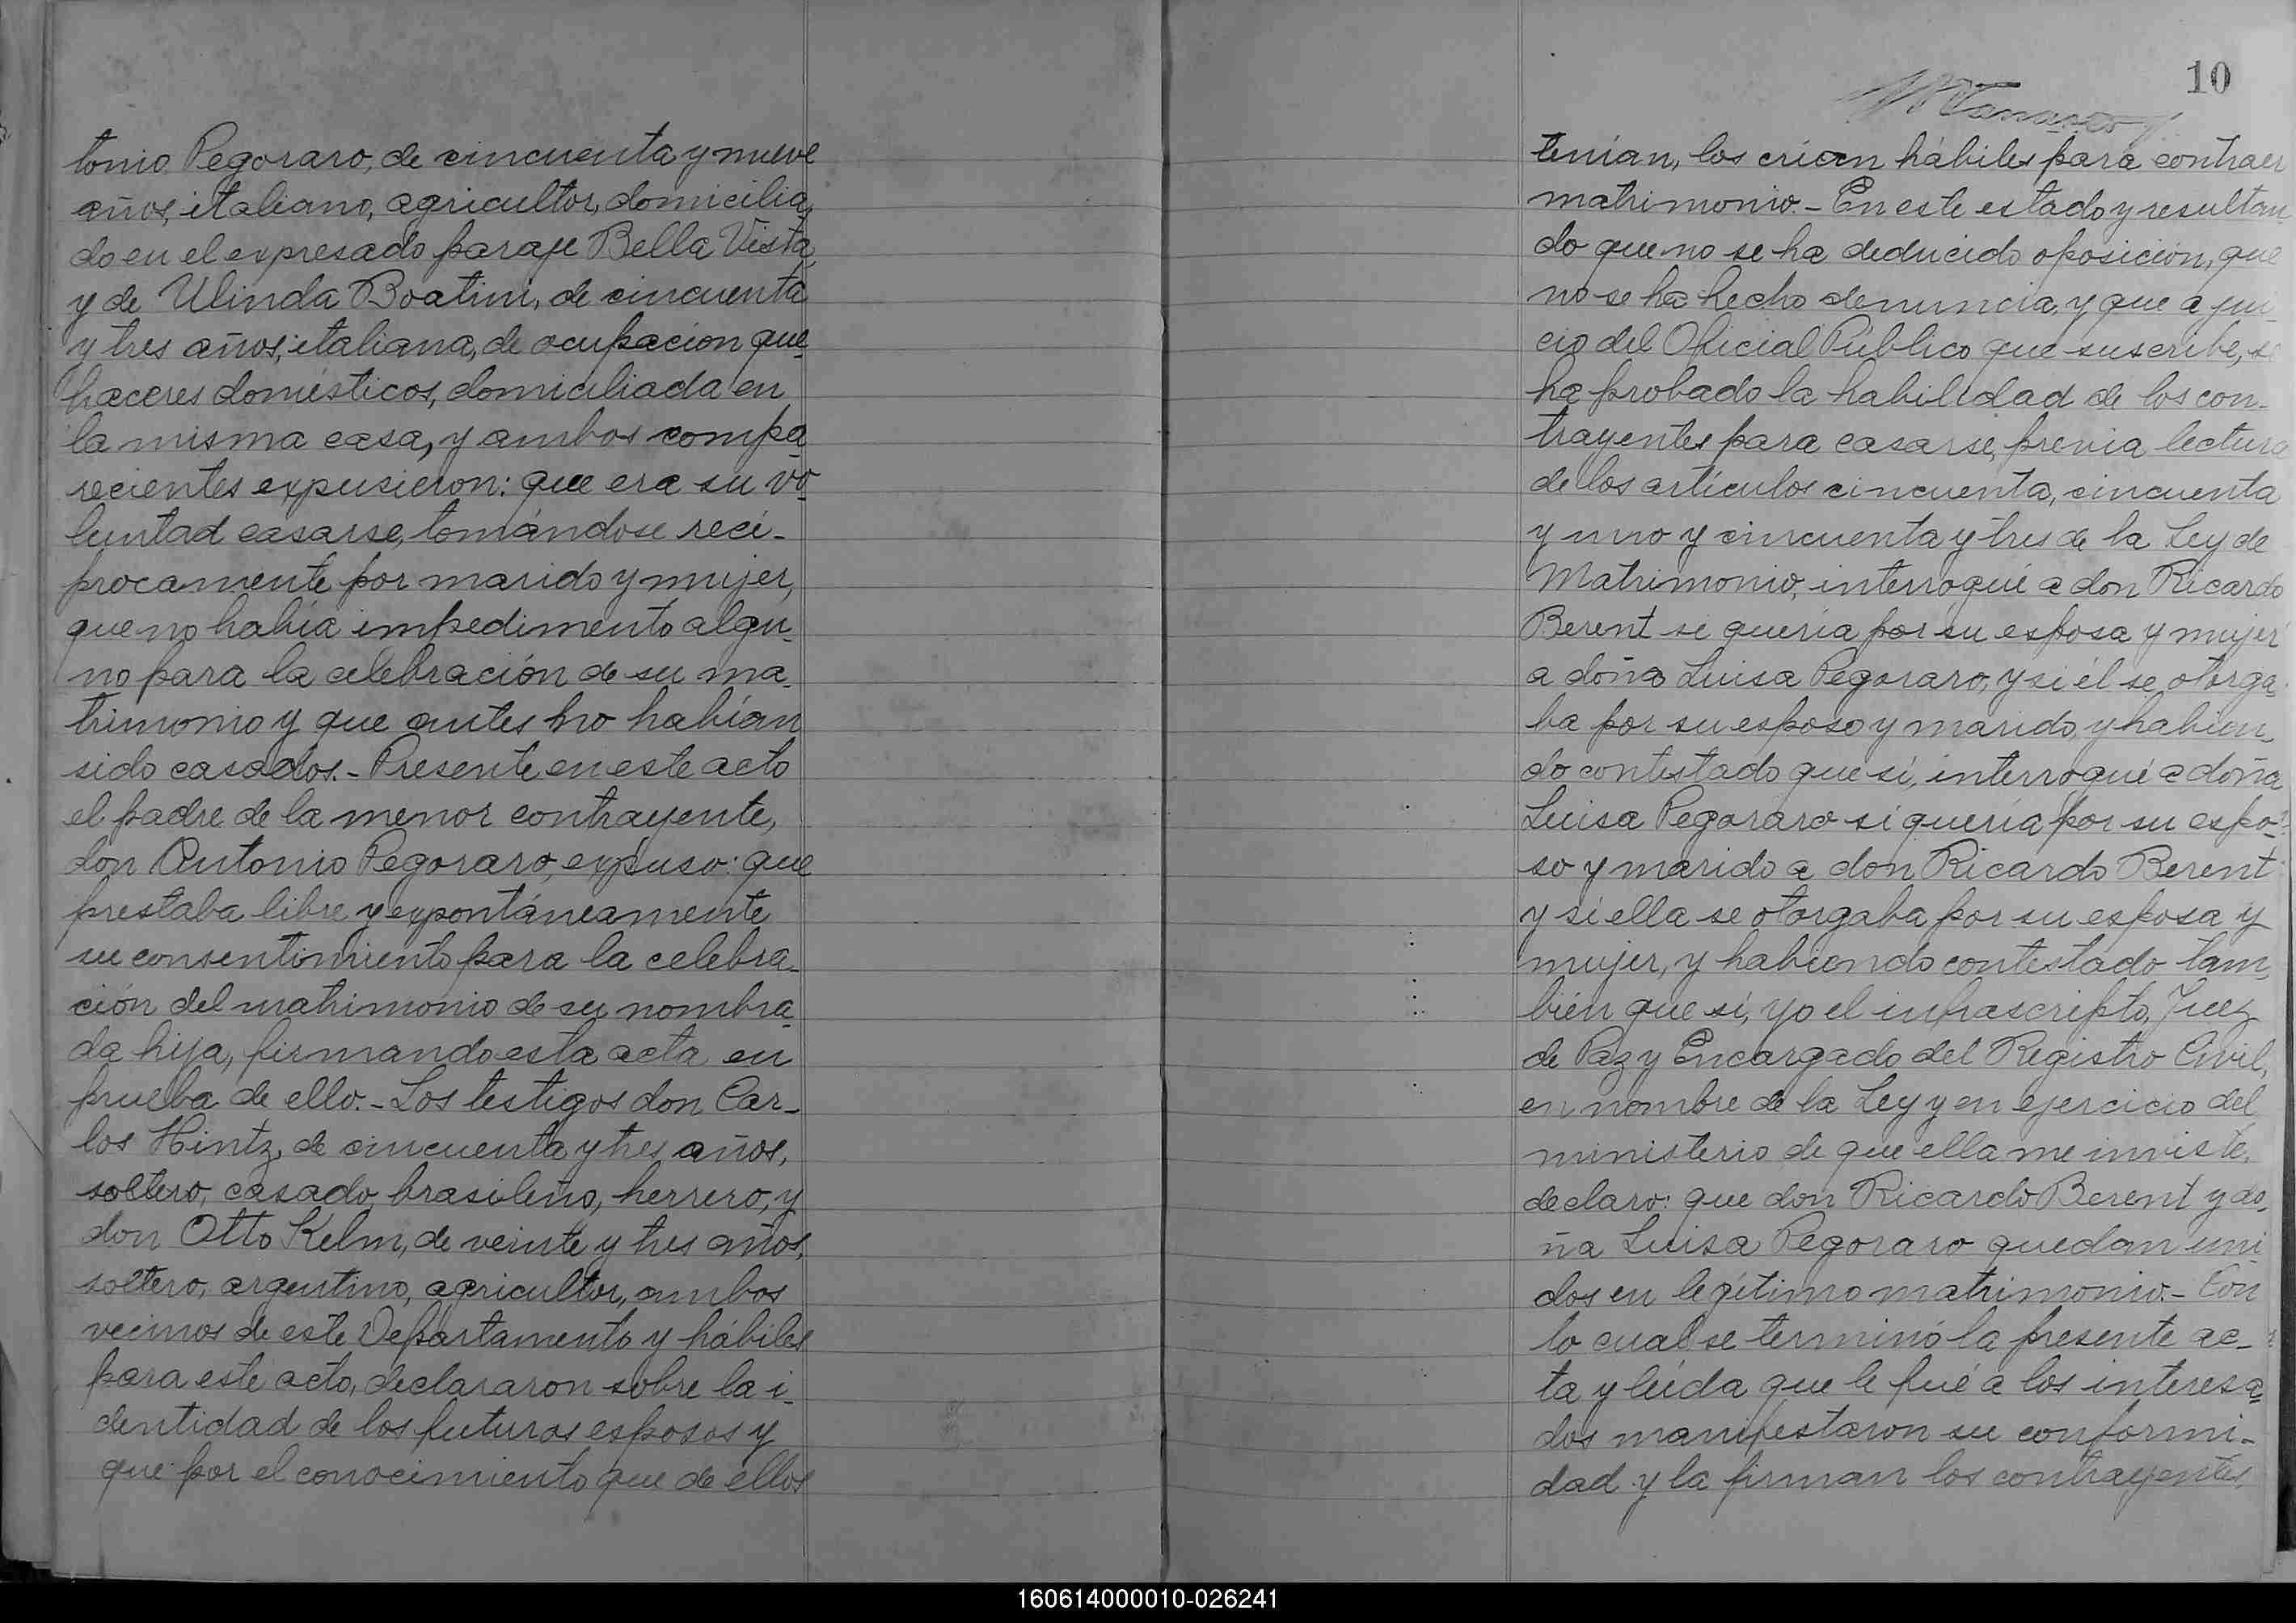 tonio Pegoraro, de cincuenta y nueve
años, italiano, agricultor, domicilia
do en el expresado paraje Bella Vista,
y de Ulinda Boatini, de cincuenta
y tres años, italiana, de ocupación que
haceres domésticos, domiciliada en
la misma casa, y ambos compa
recientes expusieron: que era su vo
luntad casarse, tomándose reci-
procamente por marido y mujer,
que no había impedimento algu
no para la celebración de su ma
trimonio y que antes no habían
sido casados.- Presente en este acto
el padre de la menor contrayente,
don Antonio Pegoraro, expuso: que
prestaba libre y expontáneamente
su consentimiento para la celebra-
ción del matrimonio de su nombra
da hija, firmando esta acta en
prueba de ello.- Los testigos don Car-
los Hintz, de cincuenta y tres años,
soltero, casado, brasileño, herrero, y
don Otto Kelm, de veinte y tres años,
soltero, argentino, agricultor, ambos
vecinos de este Departamento y hábiles
para este acto, declararon sobre la i
dentidad de los futuros esposos y
que por el conocimiento que de ellos
10
tenían, los creían hábiles para contraer
matrimonio.- En este estado y resultan
do que no se ha deducido oposición, que
no se ha hecho denuncia, y que a jui
cio del Oficial Público que suscribe, se
ha probado la habilidad de los con-
trayentes para casarse, previa lectura
de los artículos cincuenta, cincuenta
y uno y cincuenta y tres de la Ley de
Matrimonio, interrogué a don Ricardo
Berent si quería por su esposa y mujer
a doña Luisa Pegoraro, y si él se otorga
ba por su esposo y marido, y habien
do contestado que sí, interrogué a doña
Luisa Pegoraro si quería por su espo-
so y marido a don Ricardo Berent
y si ella se otorgaba por su esposa y
mujer, y habiendo contestado tam
bién que sí, yo el infrascripto, Juez
de Paz y Encargado del Registro Civil,
en nombre de la Ley y en ejercicio del
ministerio de que ella me inviste,
declaro: que don Ricardo Berent y do
ña Luisa Pegoraro quedan uni
dos en legítimo matrimonio.- Con
lo cual se terminó la presente ac-
ta y leída que le fué a los interesa
dos manifestaron su conformi-
dad y la firman los contrayentes,
160614000010-026241